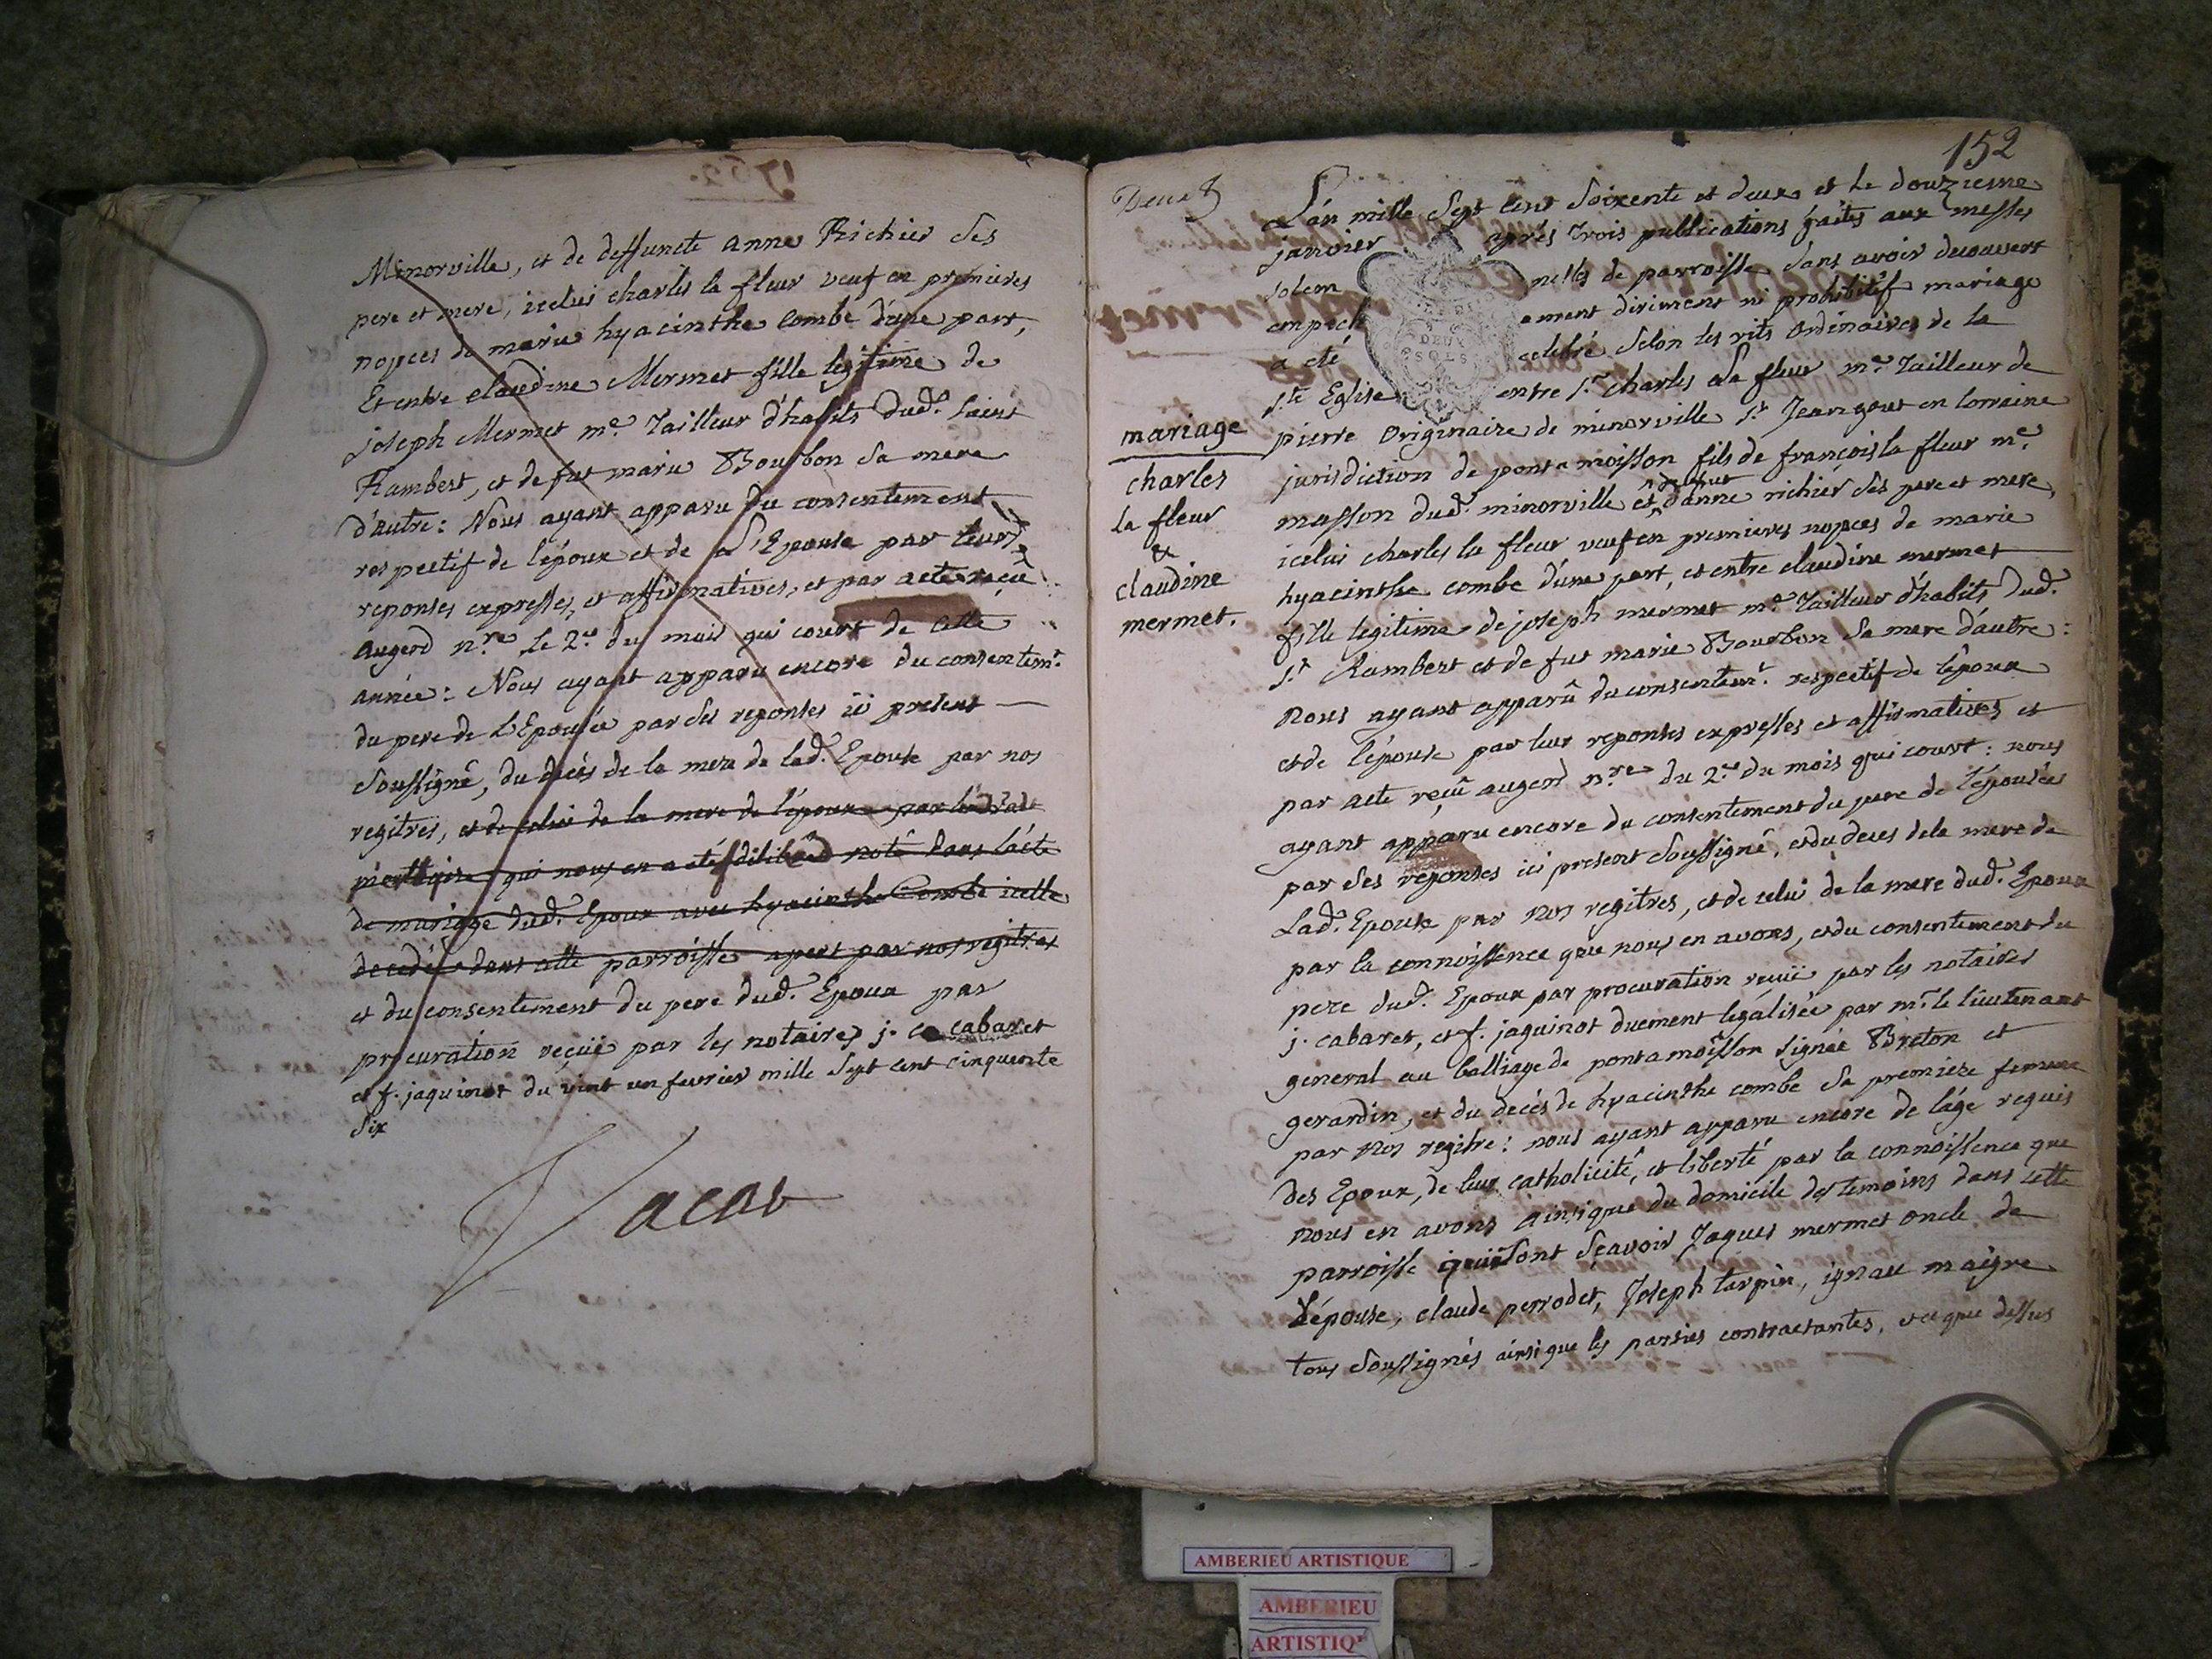 1762.
Minorville, et de deffuncte anne Richier ses
pere et mere, icelui charles la fleur veuf en premieres
nopces de marie hyacinthe combe d'une part,
Et entre claudine Mermet fille legitime de
joseph Mermet me. Tailleur d'habits dud. saint
Rambert, et de fut marie Bourbon sa mere
d'autre: Nous ayant apparu du consentement
respectif de l'époux et de l'Epouse par leurs
reponses expresses, et affirmatives, et par acte reçu
augerd nre. le 2e. du mois qui court de cette
année: Nous ayant apparu encore du consentemt.
du pere de l'Epousée par ses reponses ici present
soussigné, du decés de la mere de lad. Epouse par nos
regitres, et de celui de la mere de l'époux par
qui nous en a eté noté dans l'acte
de mariage dud. Epoux avec hyacinthe Combe icelle
decedée dans cette parroisse apert par nos regitres
et du consentement du pere dud. Epoux par
procuration reçuë par les notaires j. ca cabaret
et f. jaquinot du vint un fevrier mille sept cent cinquente
six
Vacat
152
L'an mille sept cent soixente et deux et le douzieme
janvier après trois publications faites aux messes
solem nelles de parroisse sans avoir decouvert
empech ement diriment ni prohibitif mariage
a eté celebré selon les rits ordinaires de la
ste Eglise entre sr. charles La fleur me. Tailleur de
pierre originaire de minorville st Jean gout en lorraine
jurisdiction de pont a moisson fils de françois la fleur me.
de fut
masson dud. minorville et d'anne richier ses pere et mere,
icelui charles la fleur veuf en premieres nopces de marie
hyacinthe combe d'une part, et entre claudine mermet
fille legitime de joseph mermet me. Tailleur d'habits dud.
st. Rambert et de fut marie Bourbon sa mere d'autre:
nous ayant apparû du consentemt. respectif de l'époux
et de l'épouse par leur reponses expresses et affirmatives et
par acte reçû augerd nre du 2e. du mois qui court: nous
ayant apparu encore du consentement du pere de l'épousée
par ses reponses ici present soussigné, et du deces de la mere de
Lad. Epouse par nos regitres, et de celui de la mere dud. Epoux
par la connoissence que nous en avons, et du consentement du
pere dud. Epoux par procuration reçuë par les notaires
j. cabaret, et f. jaquinot duement legalisée par mr. le lieutenant
general au balliage de pontamoisson signée Breton et
gerardin, et du decés de hyacinthe combe sa premiere femme
par nos regitre: nous ayant apparu encore de l'age requis
des Epoux, de leur catholicité, et liberté par la connoissence que
nous en avons ainsi que du domicile des temoins dans cette
parroisse qui sont sçavoir Jaques mermet oncle de
L'épouse, claude perrodet, Joseph tarpin, ignace maigre
tous soussignés ainsi que les parties contractantes, et ce que dessus
mariage
charles
la fleur
&
claudine
mermet.
DEUX
SOLS
AMBERIEU ARTISTIQUE
AMBERIEU
ARTISTIQ